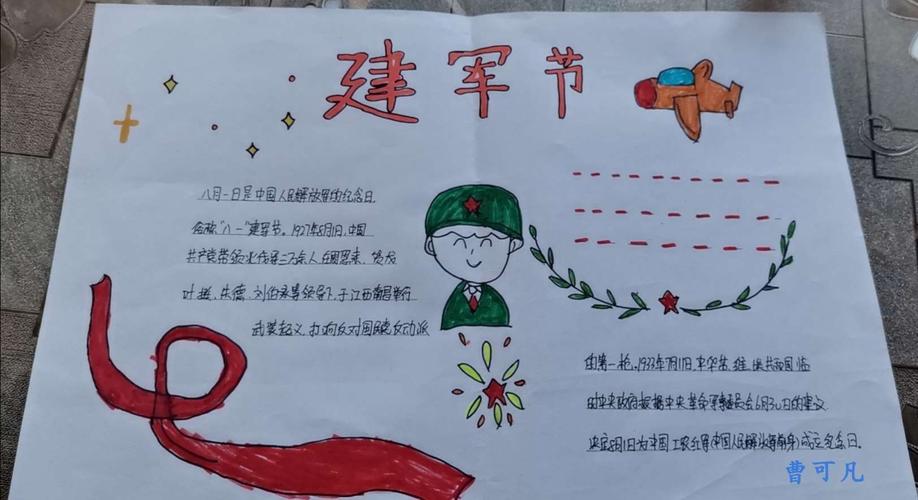 建军节
八月一日是中国人民解放军的纪念日,
合称"八一"建军节。1927年8月1日,中国
共产党带领北伐军三万余人在周恩来、贺龙
叶挺、朱德、刘伯承等领导下,于江西南昌举行
武装起义,打响反对国民党反动派
的第一枪,1933年7月11日,中华苏维埃共和国临
时中央政府根据中央革命军事委员会6月30日的建议
决定8月1日为中国工农红军(中国人民解放军前身)成立纪念日.
曹可凡